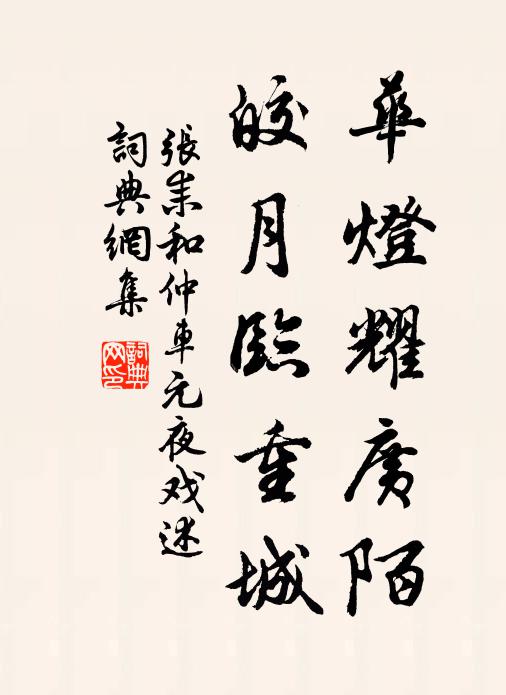 華燈耀廣陌
皎月臨重城
張耒和仲車元夜戏述
詞典網集
詞典網印